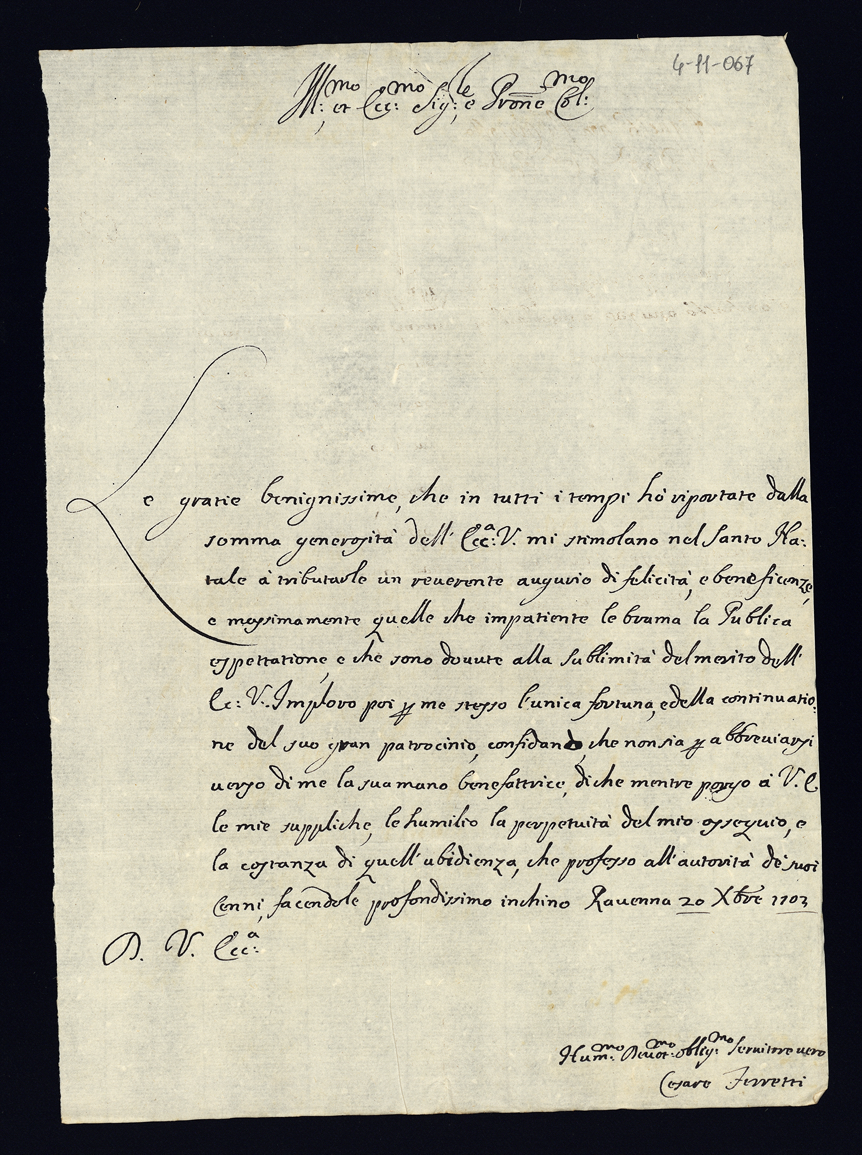 4-11-067
Ill:mo et Ecc:mo Sig:le e Pron̅e Col:mo
Le gratie benignissime, che in tutti i tempi hò riportate dalla
somma generosità dell' Ecc:a V. mi stimolano nel Santo Na:
tale à tributarle un reuerente augurio di felicità, e beneficenze,
e massimamente quelle che impatiente le brama la Publica
espettatione, e che sono douute alla sublimità del merito dell'
Ec: V. Imploro poi p me stesso l'unica fortuna, e della continuatio:
ne del suo gran patrocinio, confidando, che non sia p abbreuiarsi
uerso di me la sua mano benefattrice, di che mentre porgo à V. E
le mie suppliche, le humilio la perpetuità del mio ossequio, e
la costanza di quell' ubidienza, che professo all' autorità de' suoi
Cenni, facendole profondissimo inchino Rauenna 20 Xbre 1703
D. V. Ecc:a
Hum:mo Deuot:mo oblig:mo Seruitore uero
Cesare Ferretti